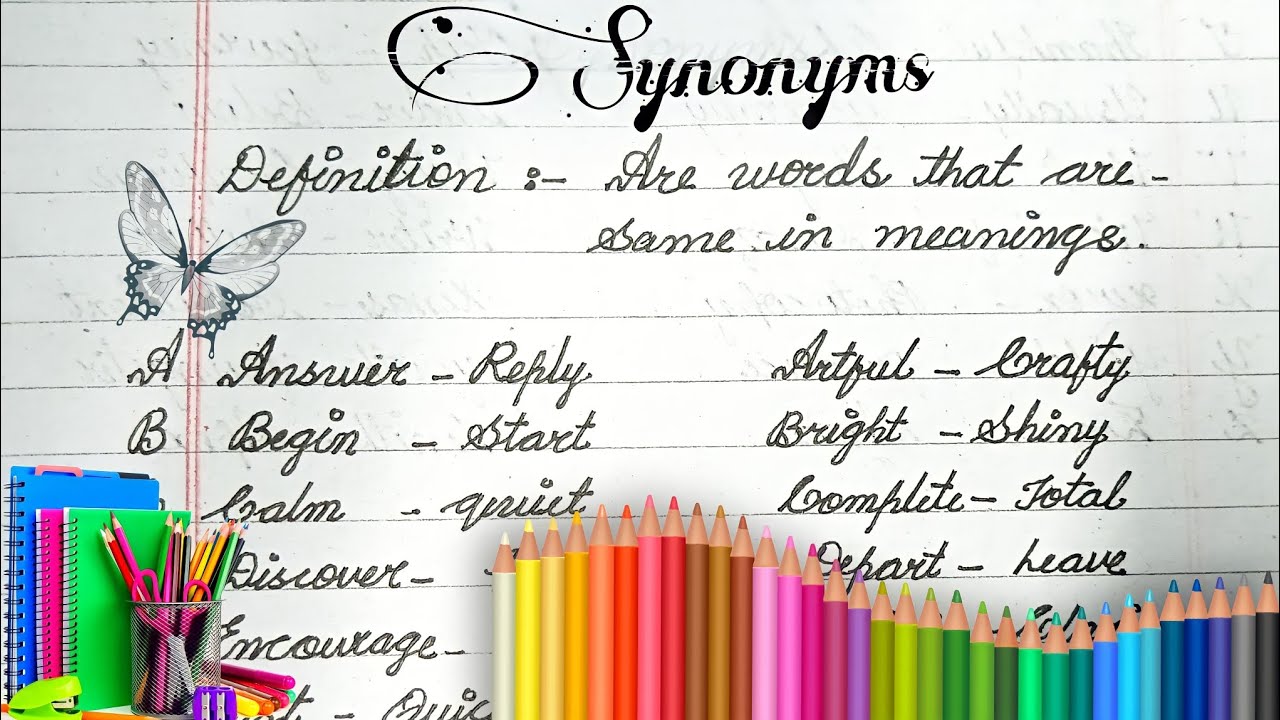 Synonyms
Definition :- Are words that are -
same in meanings.
A Answer - Reply Artful - Crafty
B Begin - Start Bright - Shiny
Calm - quiet Complete - Total
Discover - Depart - Leave
Encourage -
- Quic